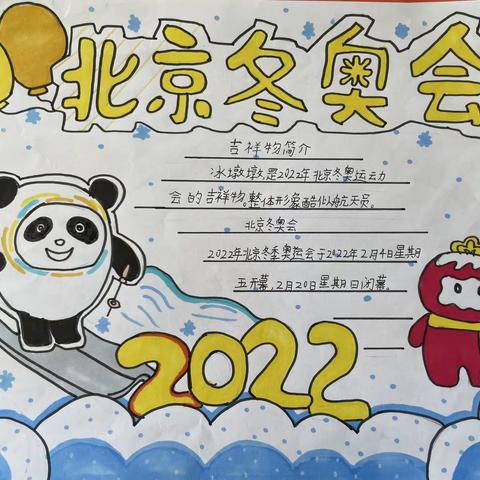 北京冬奥会
吉祥物简介
冰墩墩是2022年北京冬奥运动
会的吉祥物。整体形象酷似航天员。
北京冬奥会
2022年北京冬季奥运会于2022年2月4日星期
五开幕,2月20日星期日闭幕。
2022